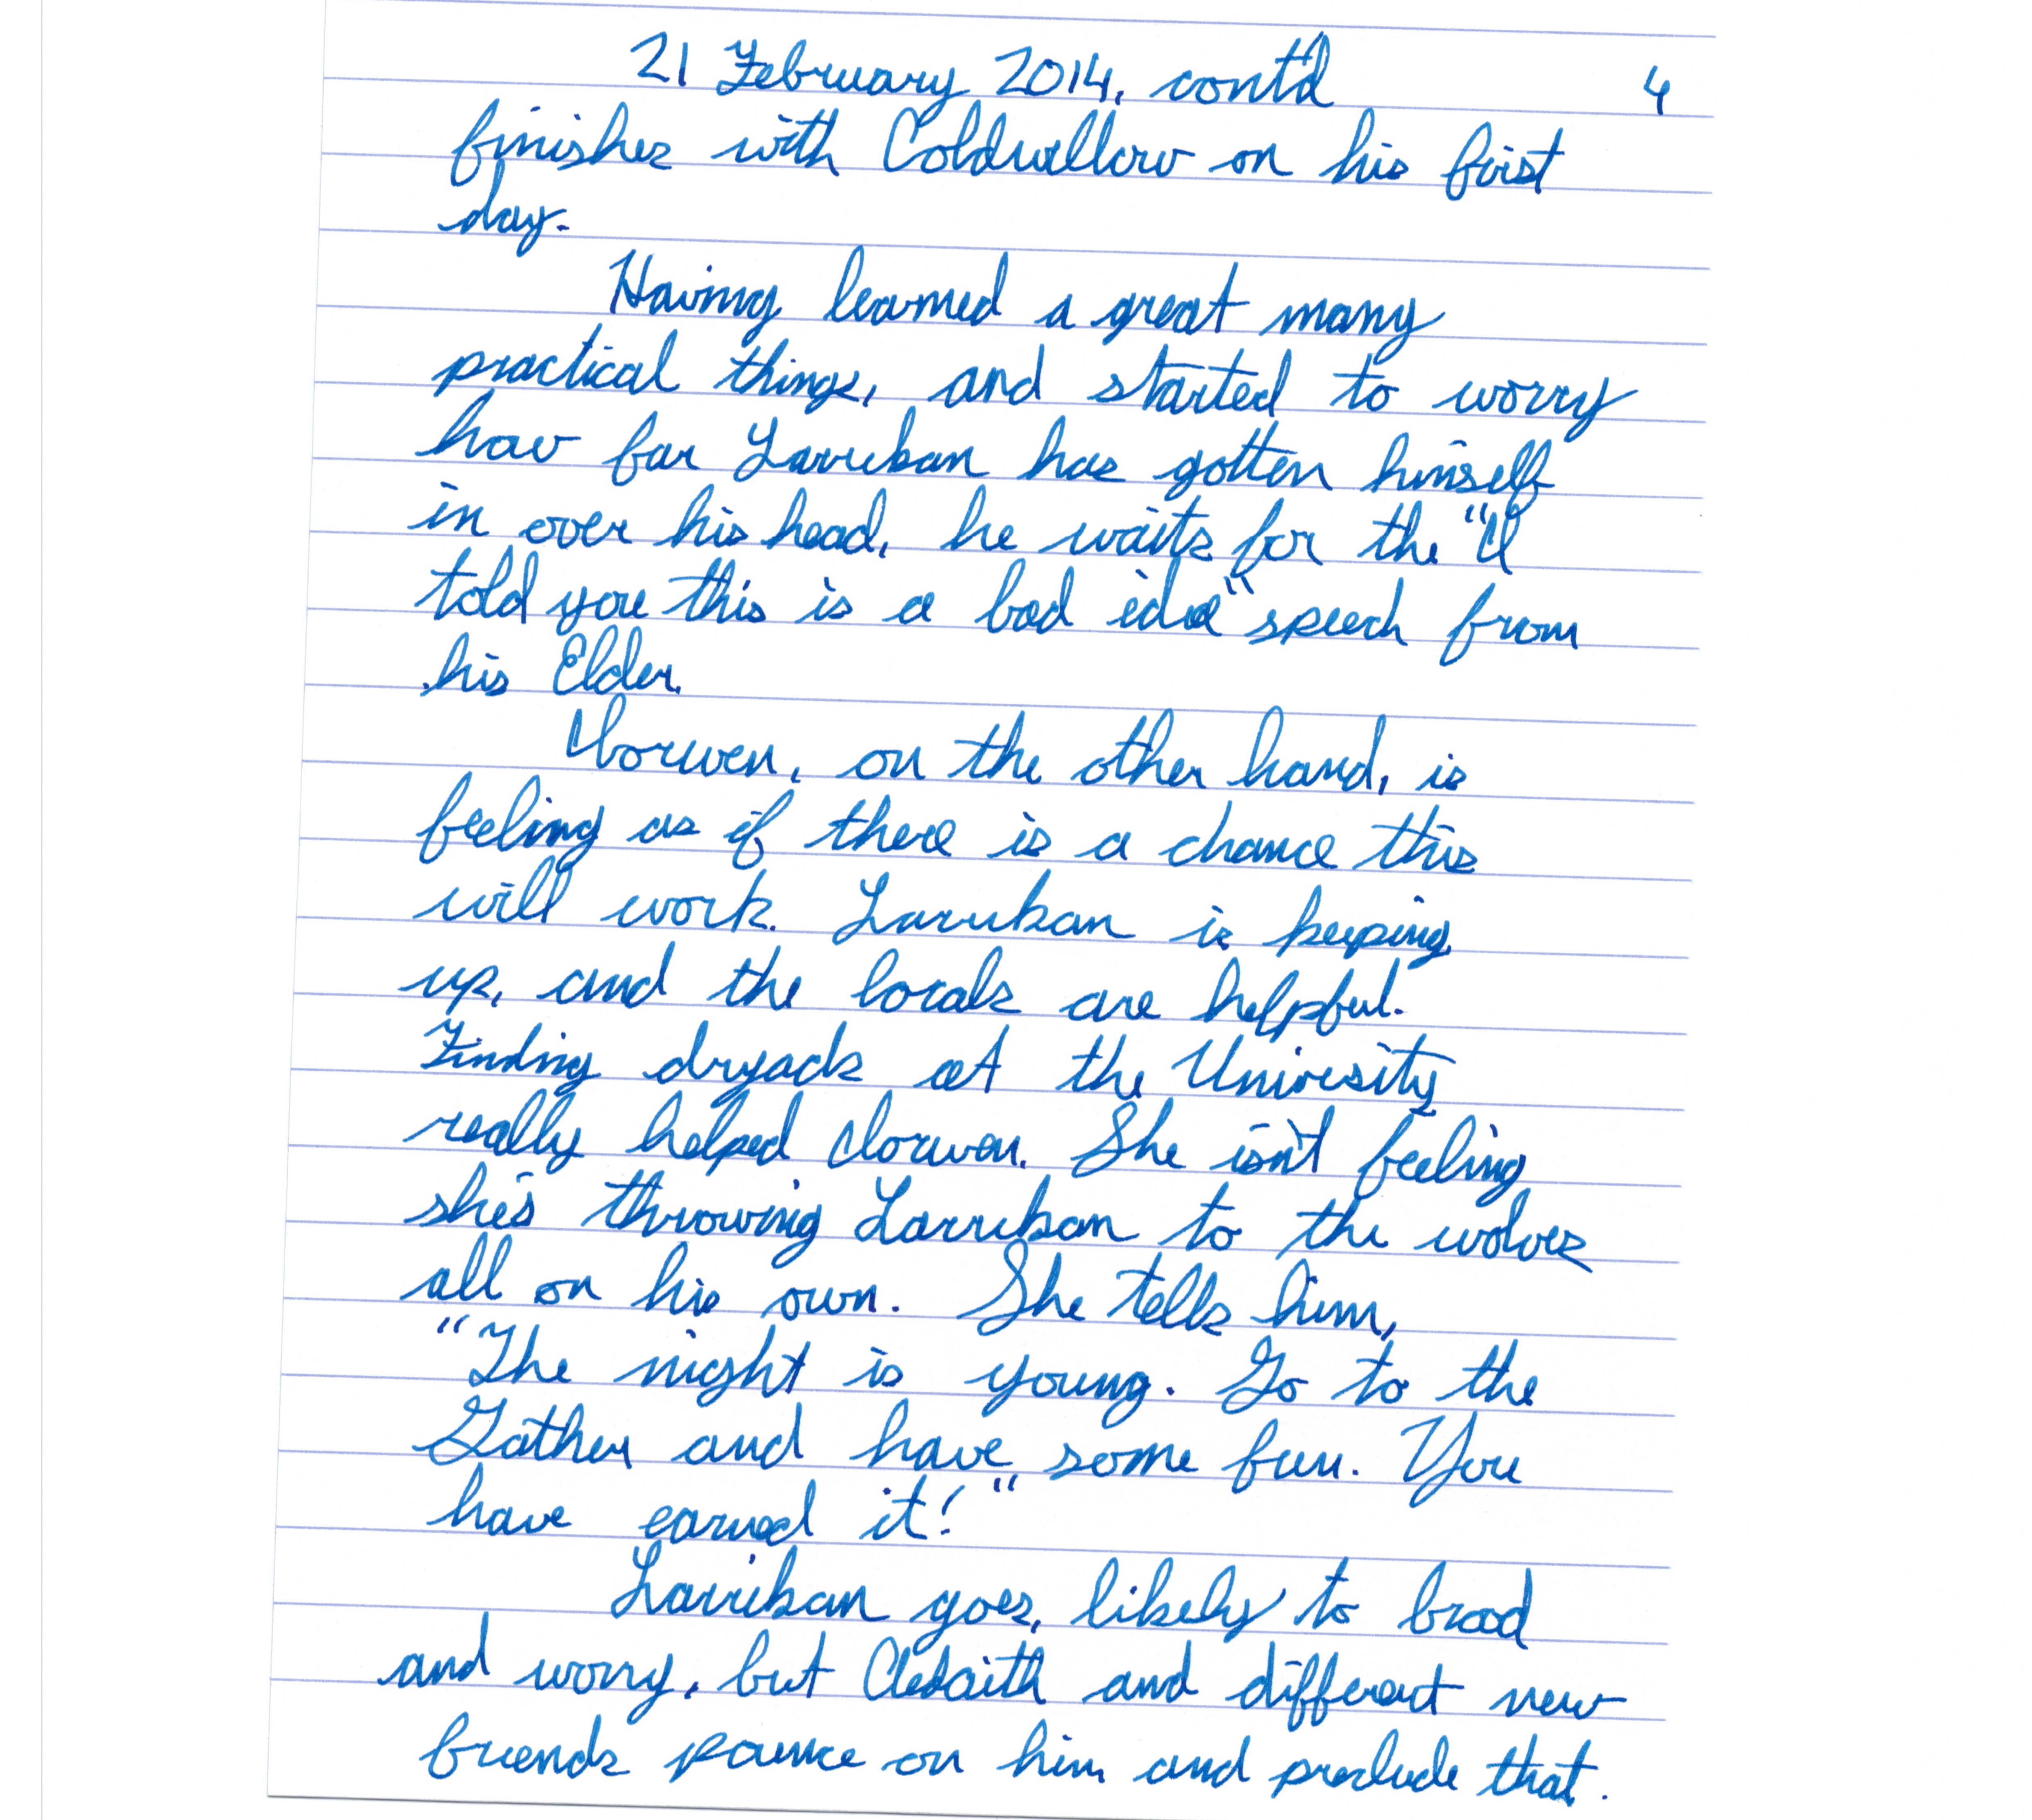 21 February 2014, cont'd 4
finishes with Coldwillow on his first
day.
Having learned a great many
practical things, and started to worry
how far Larrikan has gotten himself
in over his head, he waits for the "I
told you this is a bad idea" speech from
his Elder.
on the other hand, is
feeling as if there is a chance this
will work. Larrikan is keeping
up, and the locals are helpful.
Finding dryads at the Univesity
really helped She isn't feeling
she's throwing Larrikan to the wolves
all on his own. She tells him,
"The night is young. Go to the
Gather and have some fun. You
have earned it!"
Larrikan goes, likely to brood
and worry, but and different new
friends pounce on him and preclude that.